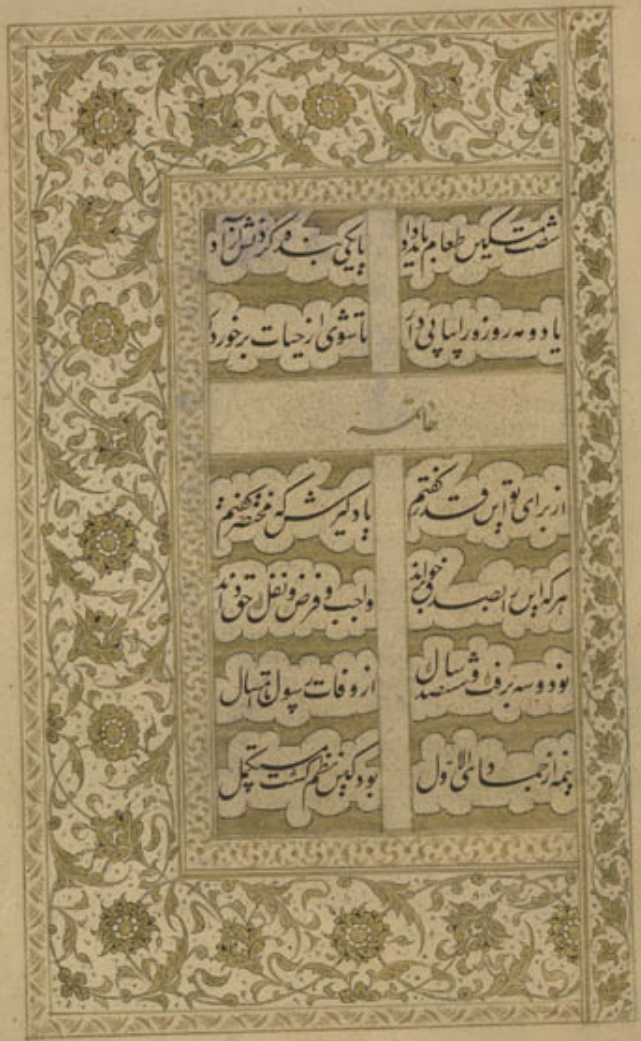 شصت مسکین طعام باید داد یا یکی بنده کردنش آزاد
یا دو مه روزه را پیاپی دار تا شوی از حیات برخوردار
خاتمه
از برای تو این قدر گفتم یاد گیرش که مختصر گفتم
هر که این را بصدق خواند واجب و فرض و نفل حق داند
نود و سه برفت و ششصد سال از وفات رسول تا امسال
نیمه از جمادی الاول بود کین نظم گشت مستکمل